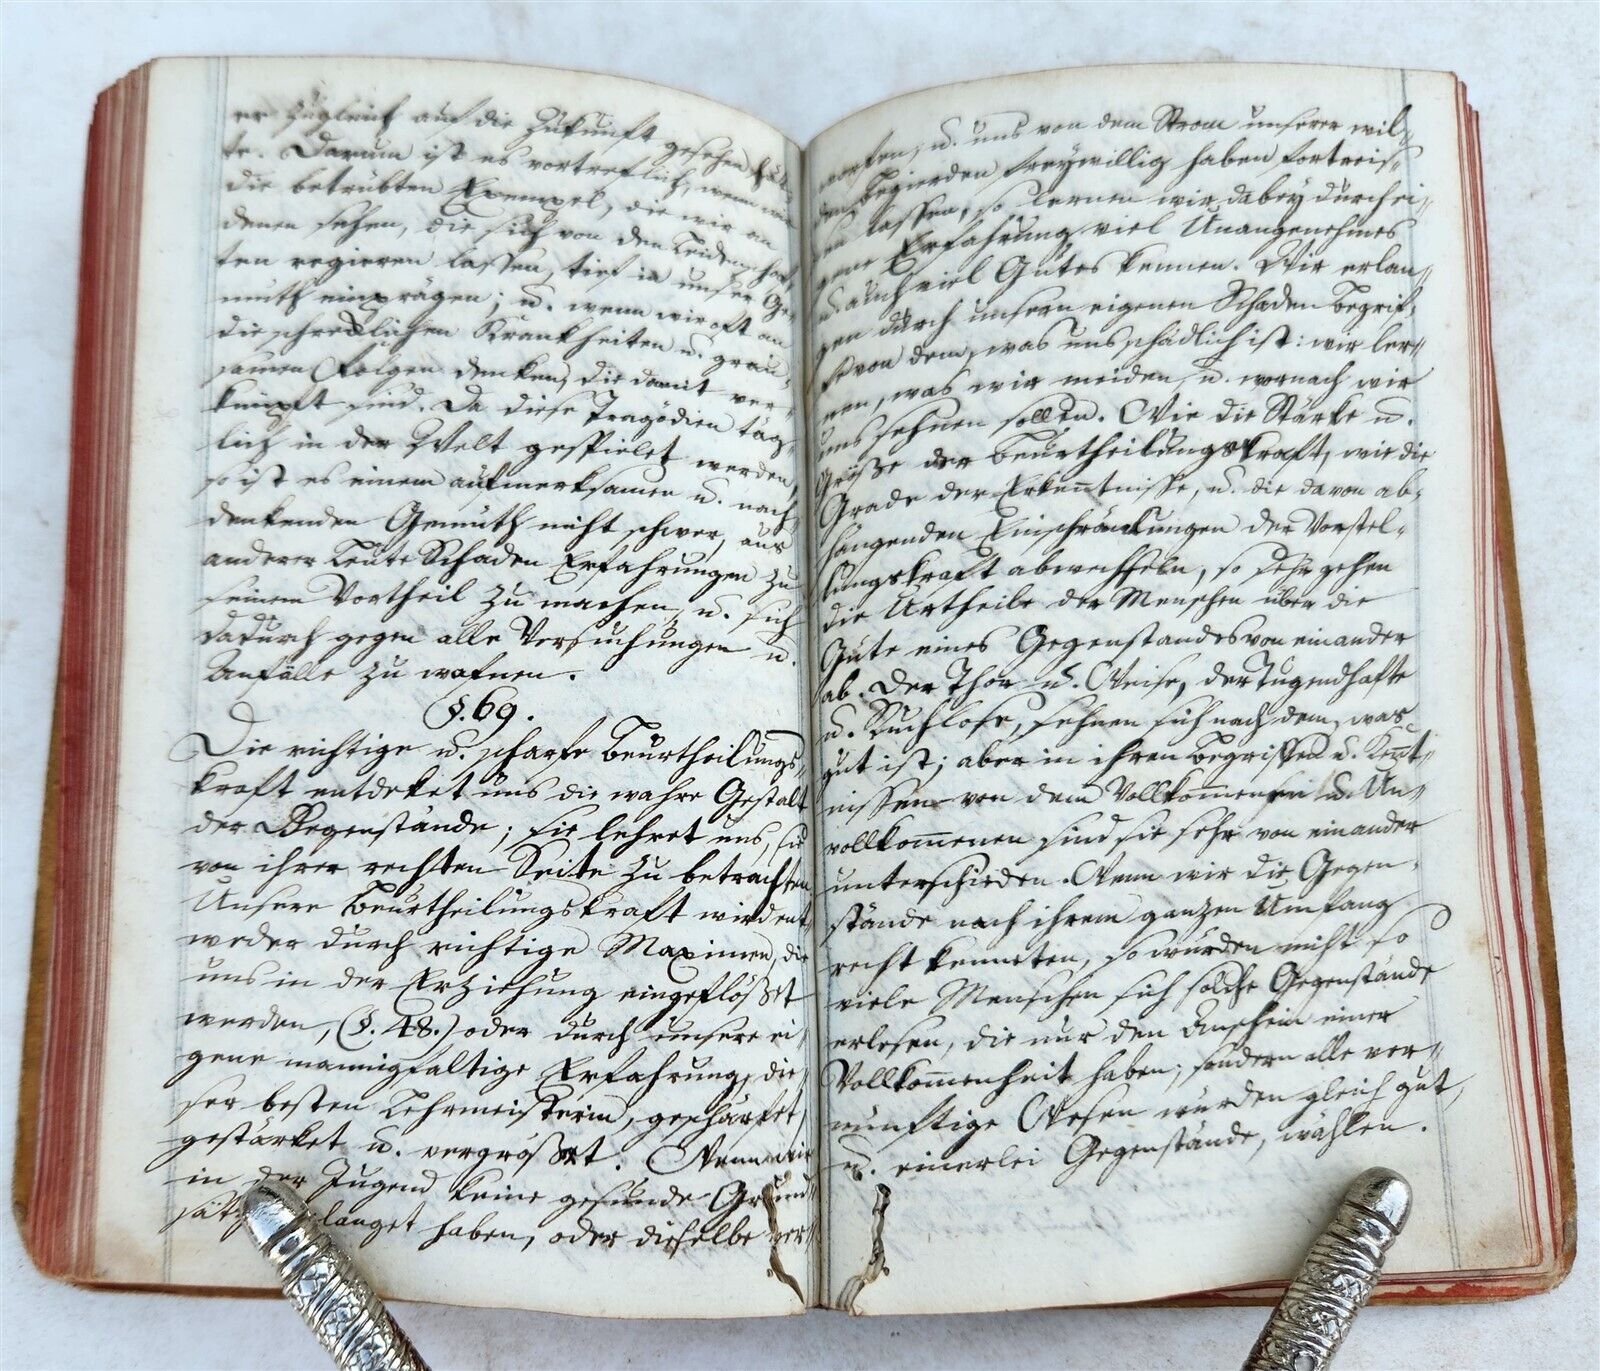 er zugleich auf die Zukunft gesehen hät-
te. Darum ist es vortreflich, wenn wir
die betrübten Exempel, die wir an
denen sehen, die sich von den Leidenschaf-
ten regieren lassen, tief in unser Ge-
müth einprägen; u. wenn wir oft an
die schrecklichen Krankheiten u. grau-
samen Folgen denken, die damit ver-
knüpft sind. Da diese Tragödien täg-
lich in der Welt gespielet werden,
so ist es einem aufmerksamen u. nach-
denkenden Gemüth nicht schwer, aus
anderer Leute Schaden Erfahrungen zu
seinem Vortheil zu machen, u. sich
dadurch gegen alle Versuchungen u.
Anfälle zu wafnen.
§. 69.
Die richtige u. scharfe Beurtheilungs-
kraft entdeket uns die wahre Gestalt
der Gegenstände; sie lehret uns, sie
von ihrer rechten Seite zu betrachten
Unsere Beurtheilungskraft wird ent-
weder durch richtige Maximen, die
uns in der Erziehung eingeflößet
werden, (§. 48.) oder durch unsere ei-
gene mannigfaltige Erfahrung, die-
ser besten Lehrmeisterin, geschärfet,
gestärket u. vergrößert. Wenn wir
in der Jugend keine gesunde Grund-
langet haben, oder dieselbe ver-
worfen, u. uns von dem Strom unserer wil-
den Begierden freywillig haben fortreis-
sen lassen, so lernen wir dabey durch ei-
gene Erfahrung viel Unangenehmes
u. auch viel Gutes kennen. Wir erlan-
gen durch unsern eigenen Schaden Begrif-
fe von dem, was uns schädlich ist: wir ler-
nen, was wir meiden, u. wornach wir
uns sehnen sollen. Wie die Stärke u.
Größe der Beurtheilungskraft, wie die
Grade der Erkentnisse, u. die davon ab-
hangenden Einschränkungen der Vorstel-
lungskraft abwechseln, so sehr gehen
die Urtheile der Menschen über die
Güte eines Gegenstandes von einander
ab. Der Thor u. Weise, der Tugendhafte
u. Ruchlose, sehnen sich nach dem, was
gut ist; aber in ihren Begriffen u. Kent-
nissen von dem Vollkommenen u. Un-
vollkommenen sind sie sehr von einander
unterschieden. Wenn wir die Gegen-
stände nach ihrem ganzen Umfang
recht kenneten, so würden nicht so
viele Menschen sich solche Gegenstände
erlesen, die nur den Anschein einer
Vollkommenheit haben; sondern alle ver-
nünftige Wesen würden gleich gut,
u. einerlei Gegenstände, wählen.